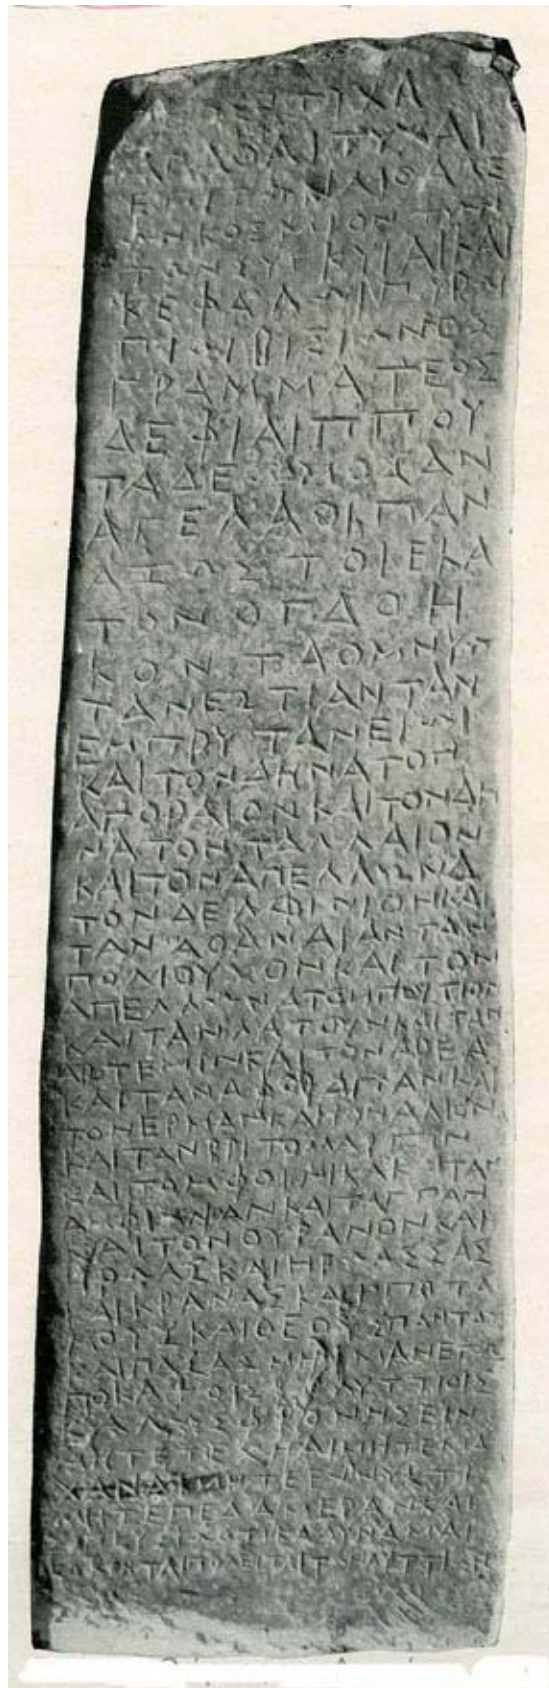 ΤΥΧΑ
ΑΓΑΘΑΙ ΤΥΧΑΙ
ΕΠΙ ΤΩΝ ΑΙΘΑΛΕ
ΩΝ ΚΟΣΜΙΟΝΤΩΝ
ΤΩΝ ΣΥΓ ΚΥΙΑΙ ΚΑΙ
ΚΕΦΑΛΩΙ ΠΥΡΩΙ
ΠΙΩΙ ΒΙΣΙΩΝΟΣ
ΓΡΑΜΜΑΤΕΟΣ
ΔΕ ΦΙΛΙΠΠΟΥ
ΤΑΔΕ ΩΜΟΣΑΝ
ΑΓΕΛΑΟΙ ΠΑΝ
ΑΖΩΣΤΟΙ ΕΚΑ
ΤΟΝ ΟΓΔΟΗ
ΚΟΝΤΑ ΟΜΝΥΩ
ΤΑΝ ΕΣΤΙΑΝ ΤΑΝ
ΕΜ ΠΡΥΤΑΝΕΙΩΙ
ΚΑΙ ΤΟΝ ΔΗΝΑ ΤΟΝ
ΑΓΟΡΑΙΟΝ ΚΑΙ ΤΟΝ ΔΗ
ΝΑ ΤΟΝ ΤΑΛΛΑΙΟΝ
ΚΑΙ ΤΟΝ ΑΠΕΛΛΩΝΑ
ΤΟΝ ΔΕΛΦΙΝΙΟΝ ΚΑΙ
ΤΑΝ ΑΘΑΝΑΙΑΝ ΤΑΝ
ΠΟΛΙΟΥΧΟΝ ΚΑΙ ΤΟΝ
ΑΠΕΛΛΩΝΑ ΤΟΜ ΠΟΙΤΙΟΝ
ΚΑΙ ΤΑΝ ΛΑΤΟΥΝ ΚΑΙ ΤΑΝ
ΑΡΤΕΜΙΝ ΚΑΙ ΤΟΝ ΑΡΕΑ
ΚΑΙ ΤΑΝ ΑΦΟΡΔΙΤΑΝ ΚΑΙ
ΤΟΝ ΕΡΜΑΝ ΚΑΙ ΤΟΝ ΑΛΙΟΝ
ΚΑΙ ΤΑΝ ΒΡΙΤΟΜΑΡΤΙΝ
ΚΑΙ ΤΟΜ ΦΟΙΝΙΚΑ ΚΑΙ ΤΑΝ
ΑΜΦΙΩΝΑΝ ΚΑΙ ΤΑΓ ΓΑΝ
ΚΑΙ ΤΟΝ ΟΥΡΑΝΟΝ ΚΑΙ
ΗΡΩΑΣ ΚΑΙ ΗΡΩΑΣΣΑΣ
ΚΑΙ ΚΡΑΝΑΣ ΚΑΙ ΠΟΤΑ
ΜΟΥΣ ΚΑΙ ΘΕΟΥΣ ΠΑΝΤΑΣ
ΚΑΙ ΠΑΣΑΣ ΜΗ ΜΑΝ ΕΓΩ
ΠΟΚΑ ΤΟΙΣ ΛΥΤΤΙΟΙΣ
ΚΑΛΩΣ ΦΡΟΝΗΣΕΙΝ
ΜΗΤΕ ΤΕΧΝΑΙ ΜΗΤΕ ΜΑ
ΧΑΝΑΙ ΜΗΤΕ ΕΝ ΝΥΚΤΙ
ΜΗΤΕ ΠΕΔ ΑΜΕΡΑΝ ΚΑΙ
ΣΠΕΥΣΙΩ ΟΤΙ ΚΑ ΔΥΝΑΜΑΙ
ΚΑΚΟΝ ΤΑΙ ΠΟΛΕΙ ΤΑΙ ΤΩΝ ΛΥΤΤΙΩΝ